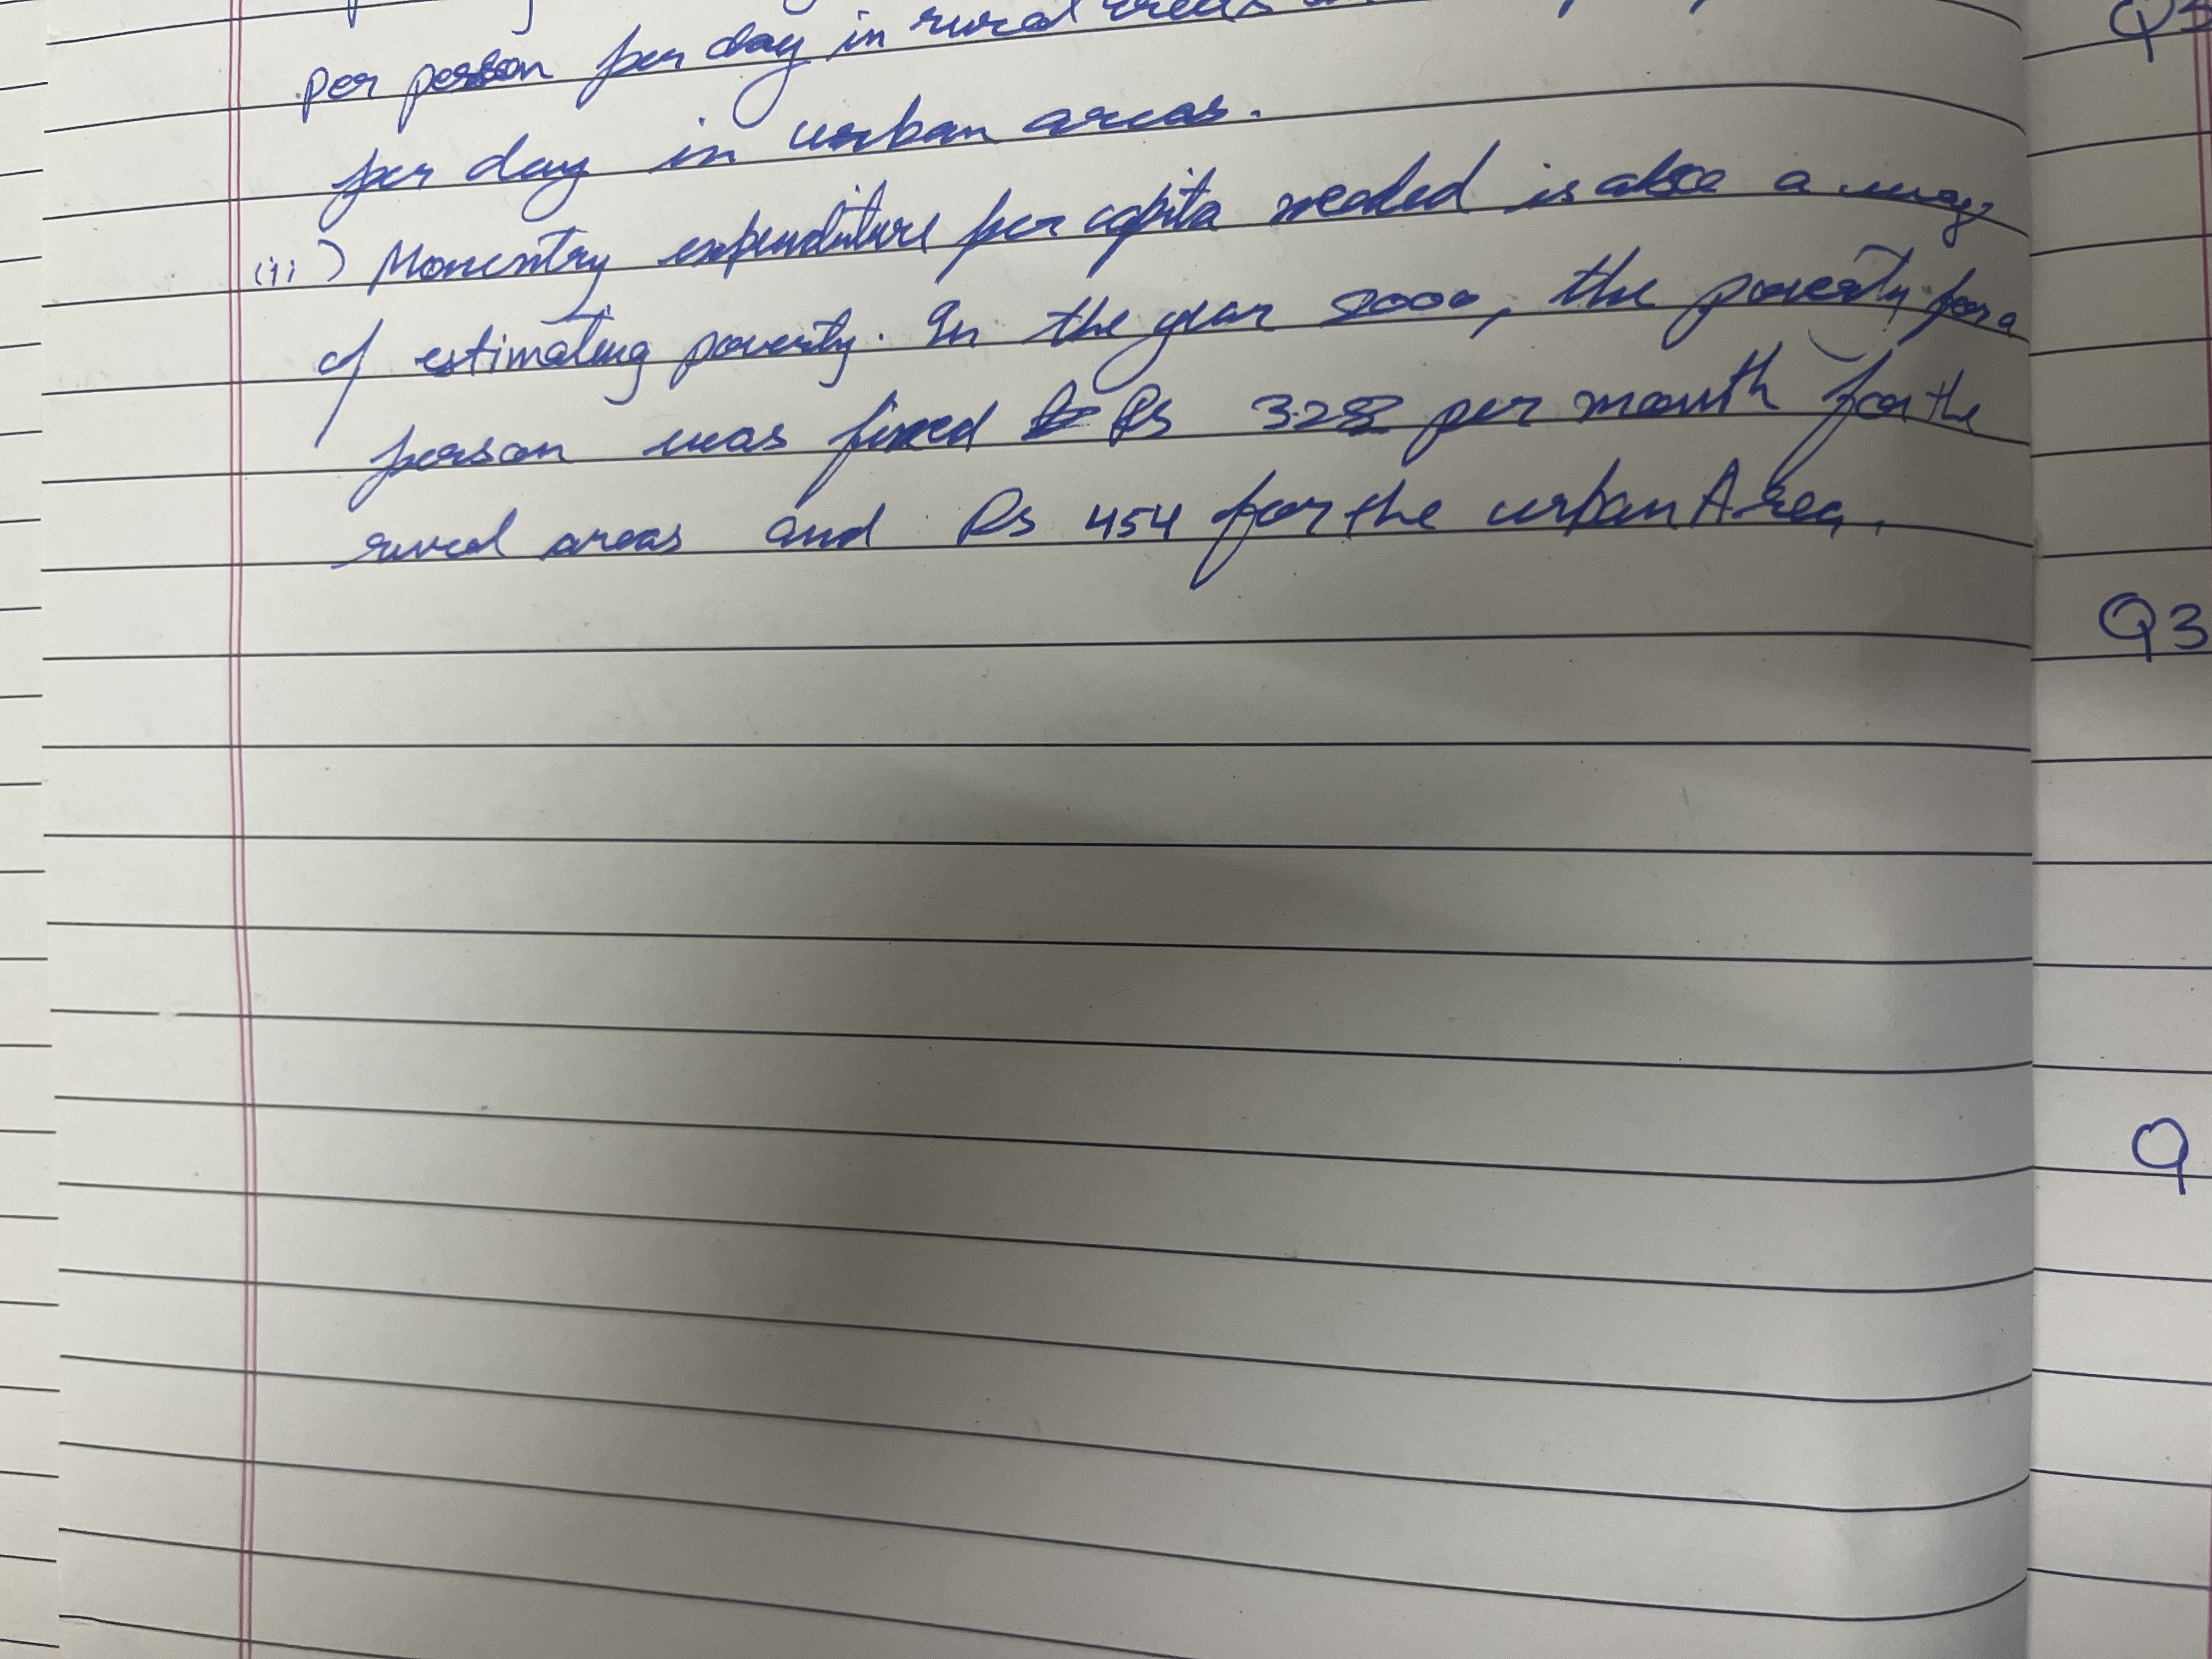 per person per day in rural areas
per day in urban areas.
(ii) Monentry expenditure per capita needed is also a way
of estimating poverty. In the year 2000, the poverty for a
person was fixed Rs 328 per month for the
rural areas and Rs 454 for the urban Area.
Q3
Q